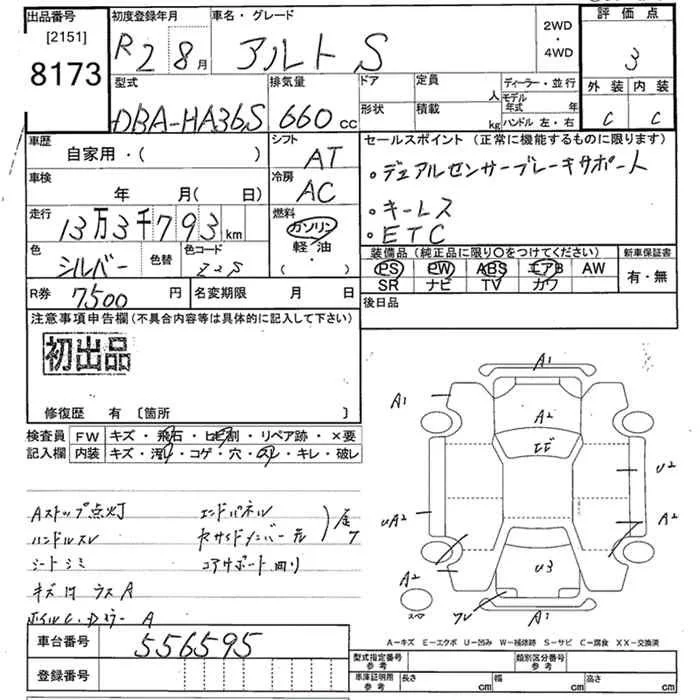 出品番号
[2151]
8173
初度登録年月
R2 8月
車名・グレード
アルト S
2WD
・
4WD
評価点
3
外装 内装
C C
型式
DBA-HA36S
排気量
660 cc
ドア
形状
定員
人
積載
kg
ディーラー・並行
モデル年式 年
ハンドル 左・右
車歴
自家用・( )
シフト
AT
車検
年 月( 日)
冷房
AC
走行
13万3千793 km
燃料
ガソリン
軽油・
( ・ )
色
シルバー
色替
色コード
Z2S
R券
7,500 円
名変期限 月 日
セールスポイント(正常に機能するものに限ります)
・デュアルセンサーブレーキサポート
・キーレス
・ETC
装備品(純正品に限り○をつけてください)
PS PW ABS エアB AW
SR ナビ TV カワ
新車保証書
有・無
後日品
注意事項申告欄(不具合内容等は具体的に記入して下さい)
初出品
修復歴 有〔箇所 〕
検査員記入欄
FW キズ・飛石・ヒビ割・リペア跡・×要
内装 キズ・汚れ・コゲ・穴・スレ・キレ・破レ
Aストップ点灯
ハンドルスレ
シートシミ
エンドパネル
コアサポート曲り
A1
A1
A2
エビ
U2
UA2
A2
A2
U3
A1
A-キズ E-エクボ U-凹み W-補修跡 S-サビ C-腐食 XX-交換済
車台番号
556595
登録番号
型式指定番号
参考
類別区分番号
参考
車庫証明用
参考
長さ cm
幅 cm
高さ cm